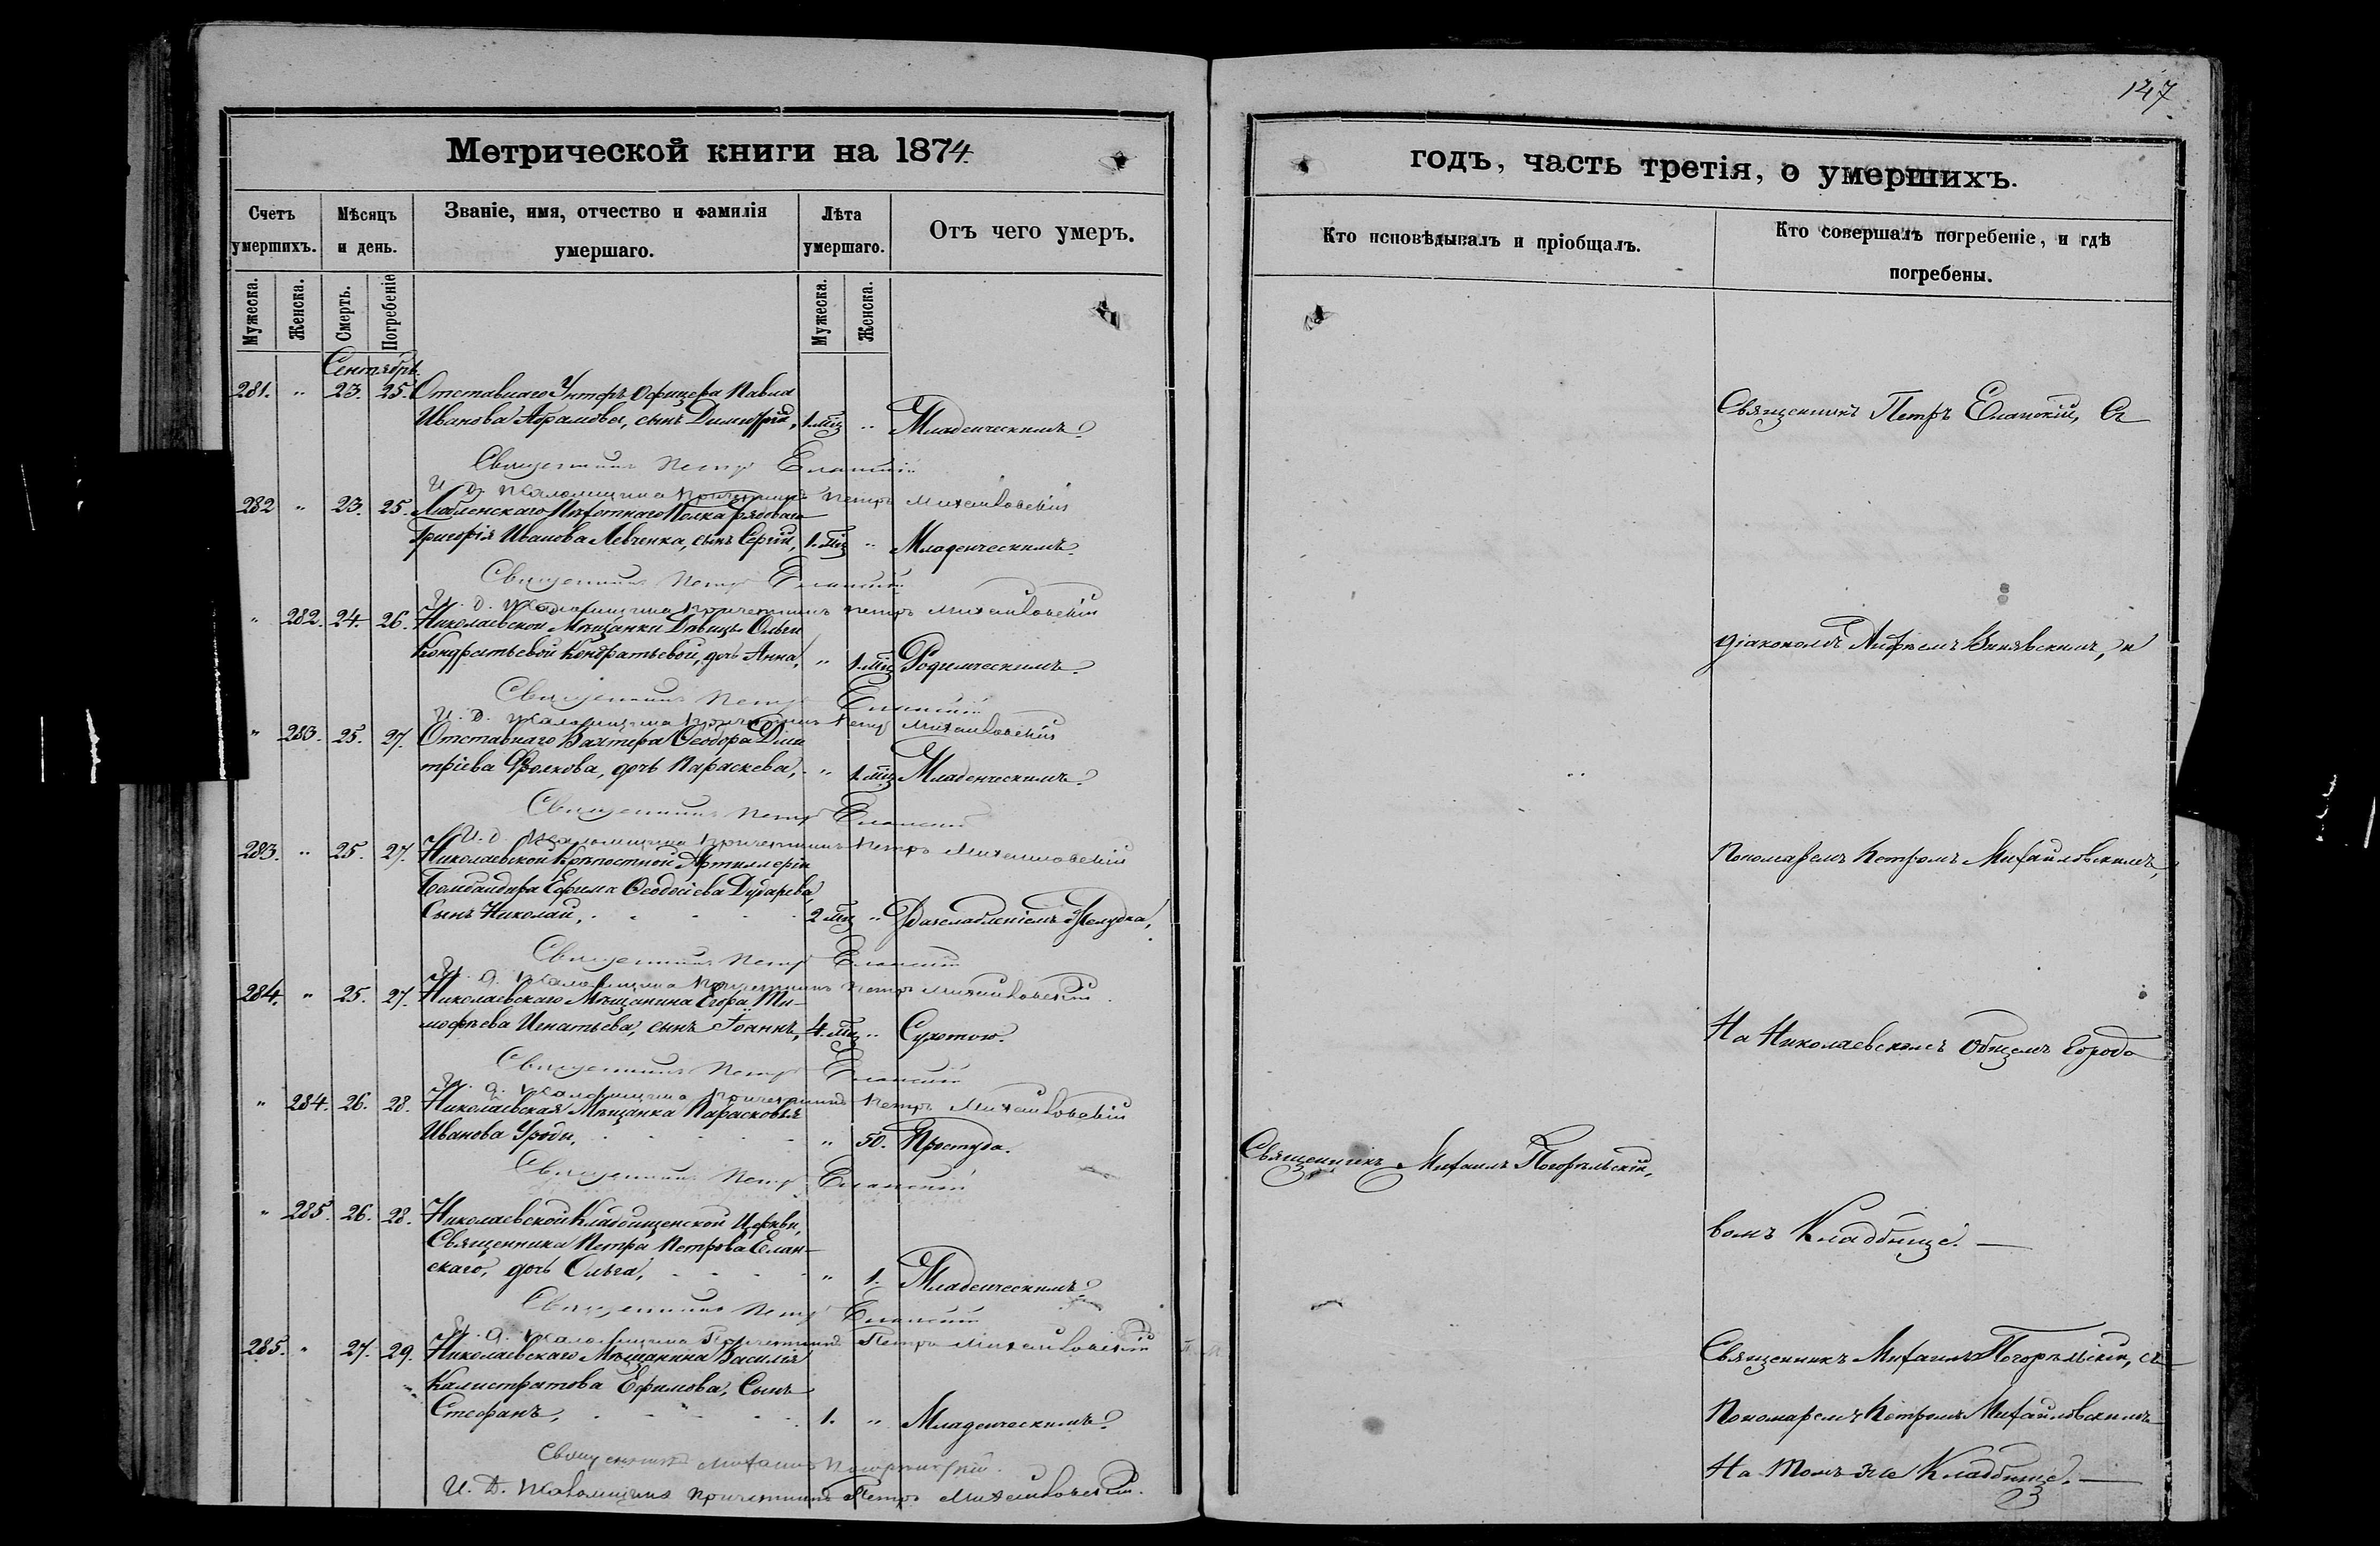 147
Метрической книги на 1874
годъ, часть третія, о умершихъ.
Счетъ умершихъ.
Мѣсяцъ и день.
Званіе, имя, отчество и фамилія умершаго.
Лѣта умершаго.
Отъ чего умеръ.
Кто исповѣдывалъ и пріобщалъ.
Кто совершалъ погребеніе, и гдѣ погребены.
Мужеска.
Женска.
Смерть.
Погребеніе
Мужеска.
Женска.
Сентябрь.
281. " 23. 25. Отставнаго Унтеръ Офицера Павла
Иванова Абрамова, сынъ Димитрій, 1. мц " Младенческимъ.
Священникъ Петръ Еланскій
И. д. Псаломщика Причетникъ Петръ Михайловскій
282 " 23. 25. Люблинскаго Пѣхотнаго Полка рядоваго
Григорія Иванова Левченка, сынъ Сергій, 1. мц " Младенческимъ.
Священникъ Петръ Еланскій
И. д. Псаломщика Причетникъ Петръ Михайловскій
" 282. 24. 26. Николаевской Мѣщанки Дѣвицы Ольги
Кондратьевой Кондратьевой, дочь Анна, " 1. мц Родимческимъ.
Священникъ Петръ Еланскій
И. д. Псаломщика Причетникъ Петръ Михайловскій
" 283. 25. 27. Отставнаго Вахтера Ѳеодора Дми
тріева Фролкова, дочь Параскева, " 1. мц Младенческимъ.
Священникъ Петръ Еланскій
И. д. Псаломщика Причетникъ Петръ Михайловскій
283. " 25. 27. Николаевской Крѣпостной Артиллеріи
Бомбандира Ефима Ѳеодосіева Дударева,
Сынъ Николай, 2 мц " Разслабленіемъ Желудка,
Священникъ Петръ Еланскій
И. д. Псаломщика Причетникъ Петръ Михайловскій
284. " 25. 27. Николаевскаго Мѣщанина Егора Ти-
мофѣева Игнатьева, сынъ Іоаннъ, 4. мц " Сухотою.
Священникъ Петръ Еланскій
И. д. Псаломщика Причетникъ Петръ Михайловскій
" 284. 26. 28. Николаевская Мѣщанка Парасковья
Иванова " 50. Простуда.
Священникъ Петръ Еланскій
" 285. 26. 28. Николаевской Кладбищенской Церкви,
Священника Петра Петрова Елан-
скаго, дочь Ольга, " 1. Младенческимъ.
Священникъ Петръ Еланскій
И. д. Псаломщика Причетникъ Петръ Михайловскій
285. " 27. 29. Николаевскаго Мѣщанина Василія
Калистратова Ефимова, Сынъ
Стефанъ, 1. " Младенческимъ.
Священникъ Михаилъ Погорѣльскій.
И. Д. Псаломщика Причетникъ Петръ Михайловскій.
Священникъ Михаилъ Погорѣльскій,
Священникъ Петръ Еланскій, Съ
діакономъ и
Пономаремъ Петромъ Михайловскимъ,
На Николаевскомъ Общемъ Городо
вомъ Кладбище. —
Священникъ Михаилъ Погорѣльскій, съ
Пономаремъ Петромъ Михайловскимъ
На томъ же Кладбище. —